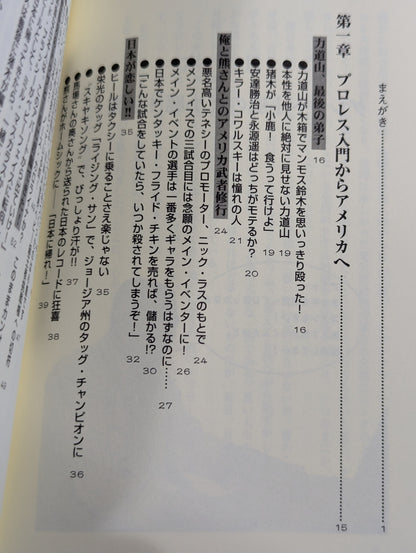 まえがき 1
第一章 プロレス入門からアメリカへ 15
力道山、最後の弟子 16
●力道山が木箱でマンモス鈴木を思いっきり殴った! 16
●本性を他人に絶対に見せない力道山 19
●猪木が「小鹿! 食うって行けよ」 19
●安達勝治と永源遥はどっちがモテるか? 20
●キラー・コワルスキーは憧れの人 21
俺と熊さんとのアメリカ武者修行 24
●悪名高いテネシーのプロモーター、ニック・ラスのもとで 24
●メンフィスでの三試合目には念願のメイン・イベンターに! 26
●メイン・イベントの選手は一番多くギャラをもらうはずなのに…… 27
●日本でケンタッキー・フライド・チキンを売れば、儲かる!? 30
●「こんな試合をしていたら、いつか殺されてしまうぞ!」 32
日本が恋しい!! 35
●ヒールはタクシーに乗ることさえ楽じゃない 35
●栄光のタッグ“ライジング・サン”で、ジョージア州のタッグ・チャンピオンに 36
●“スキヤキソング”で、びっしょり汗が!! 37
●馬場さんの奥さんから送られた日本のレコードに狂喜 38
●熊さんがホームシックに――「日本に帰れ!」 39